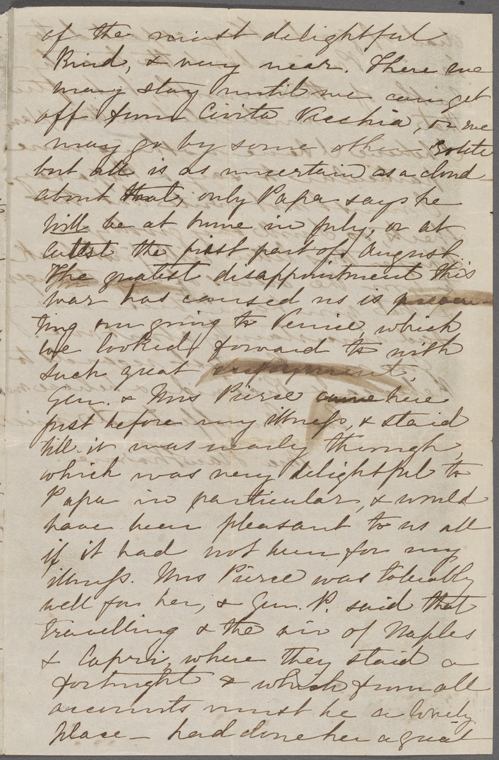 of the most delightful
kind, & very near. There we
may stay until we can get
off from Civita Vecchia, or we
may go by some other route
but all is as uncertain as a cloud
about that; only Papa says he
will be at home in July, or at
latest the first part of August
The greatest disappointment this
war has caused us is preven-
ting our going to Venice, which
we looked forward to with
such great enjoyment.
Gen. & Mrs Pierce came here
just before my illness, & staid
till it was nearly through,
which was very delightful to
Papa in particular, & would
have been pleasant to us all
if it had not been for my
illness. Mrs Pierce was tolerably
well for her, & Gen. P. said that
travelling & the air of Naples
& Capri, where they staid a
fortnight & which from all
accounts must be a lovely
place — had done her a great